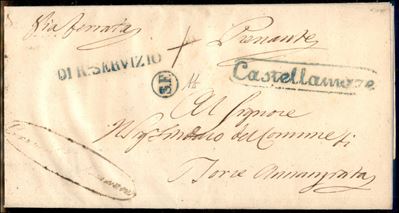 Via ferrata
Premante
DI R. SERVIZIO
S.F.
Castellamare
Al Signore
Sig. Sindaco del Comune di
Torre Annunziata